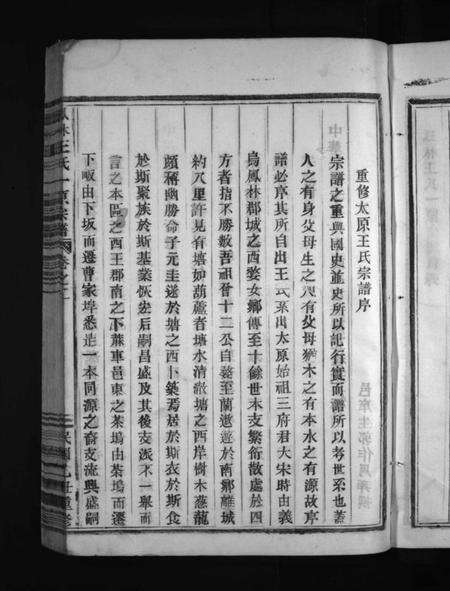 重修太原王氏宗譜序
宗譜之重與國史並史所以記行實而譜所以考世系也蓋
人之有身父母生之身之有父母猶木之有本水之有源故序
譜必序其所自出王氏系出太原始祖三府君大宋時由義
烏鳳林郡城之西婺女鄉傳至十餘世本支繁衍散處於四
方者指不勝數吾祖晉十二公自義至蘭遨遊於南鄉離城
約八里許見有塘如葫蘆者塘水清澈塘之西岸樹木蔭蘢
頗稱幽勝命子元圭遂於塘之西卜築焉居於斯衣於斯食
於斯聚族於斯基業恢宏后嗣昌盛及其後支派不一舉而
言之本區之西王郡南之下蕪車邑東之茶塢由茶塢而遷
下畈由下坂而遷曹家埠悉是一本同源之裔支流興盛嗣
王氏 宗譜 卷之
民國 重修